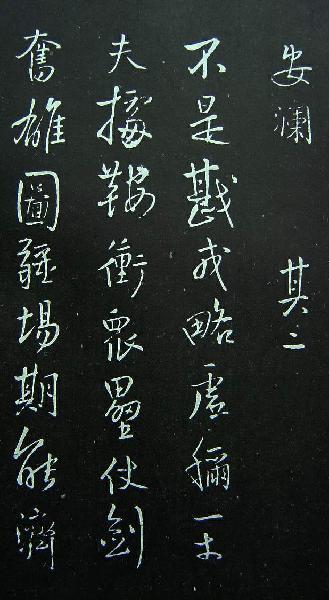 安瀾　其二
不是戡戎略虛稱一丈
夫據鞍衝眾壘仗劍
奮雄圖疆場期能濟